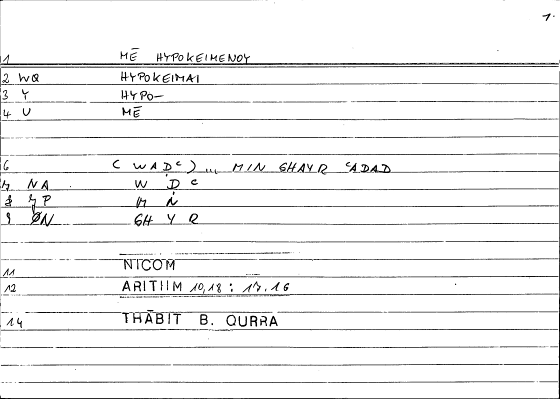 1.
1 MĒ HYPOKEIMENOY
2 WQ HYPOKEIMAI
3 Y HYPO-
4 U MĒ
6 ( WAḌʿ)... MIN GHAYR ʿADAD
7 NA W Ḍ ʿ
8 JP M N
9 ØN GH Y R
11 NICOM
12 ARITIIM 10,18 : 17.16
14 THĀBIT B. QURRA